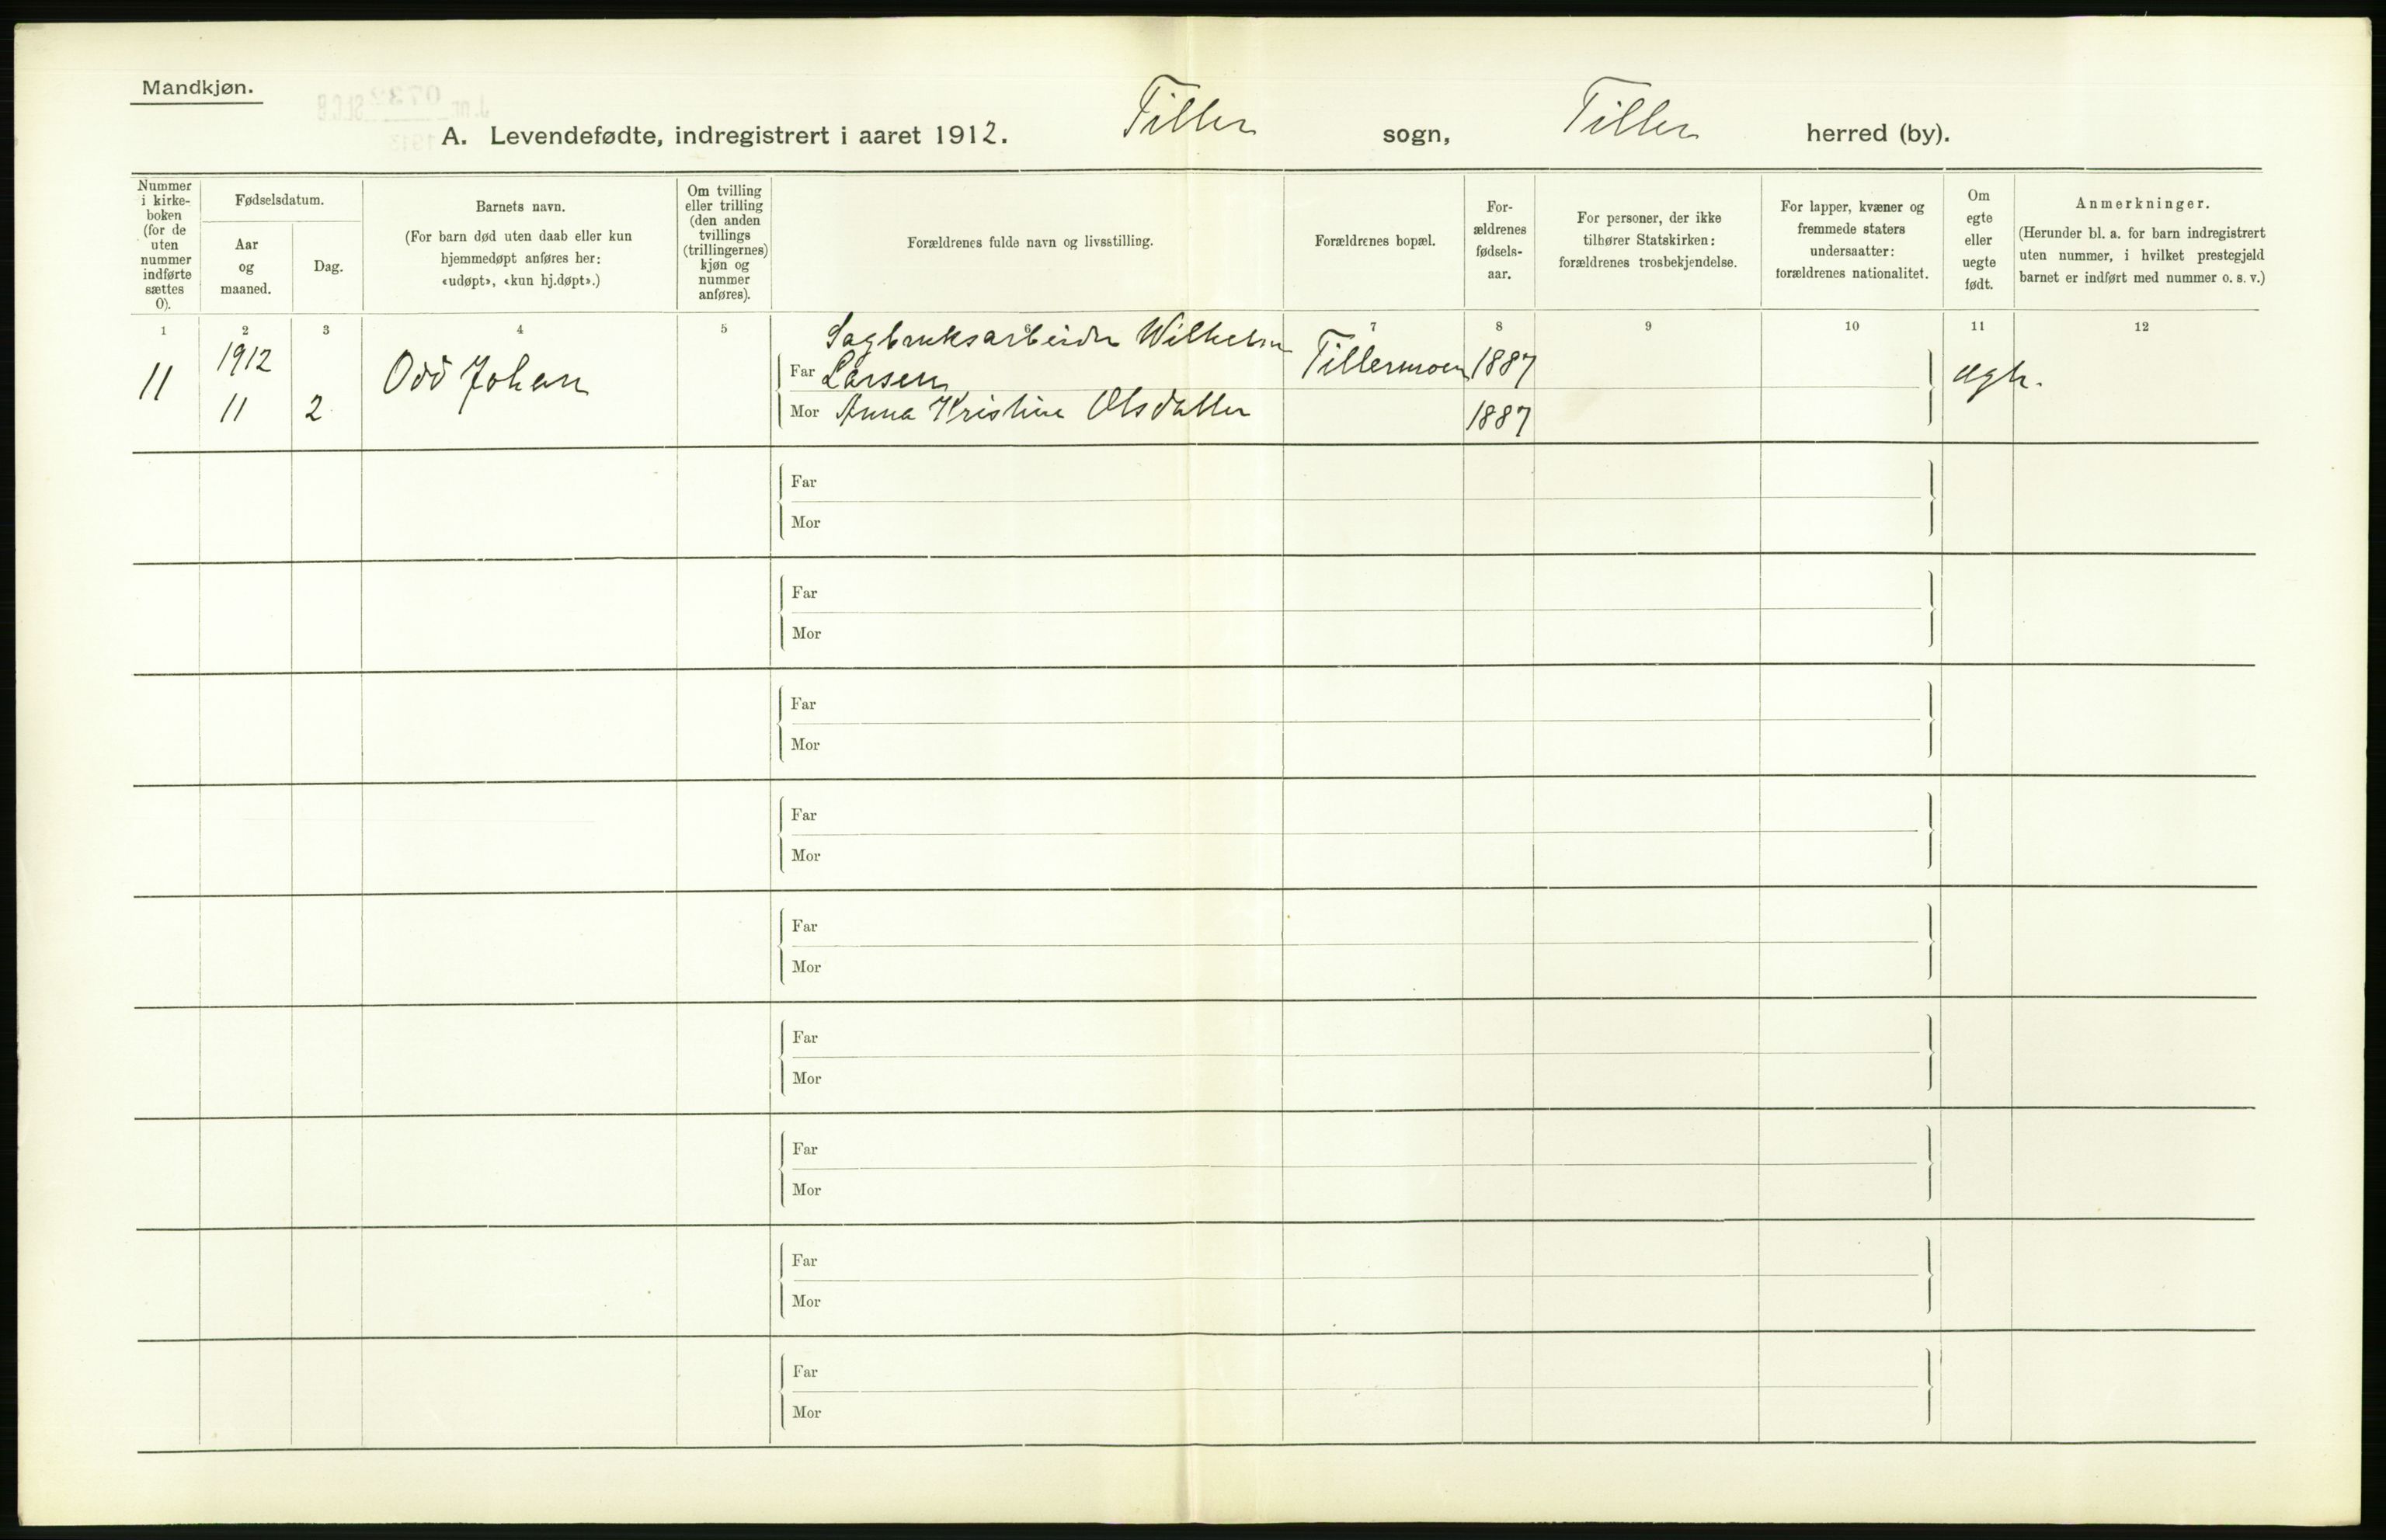 Mandkjøn.
A. Levendefødte, indregistrert i aaret 1912. Tiller sogn, Tiller herred (by).
Nummer i kirke-boken (for de uten nummer indførte sættes 0).
Fødselsdatum.
Aar og maaned.
Dag.
Barnets navn.
(For barn død uten daab eller kun
hjemmedøpt anføres her:
«udøpt», «kun hj.døpt».)
Om tvilling
eller trilling
(den anden
tvillings
(trillingernes)
kjøn og
nummer
anføres).
Forældrenes fulde navn og livsstilling.
Forældrenes bopæl.
For-
ældrenes
fødsels-
aar.
For personer, der ikke
tilhører Statskirken:
forældrenes trosbekjendelse.
For lapper, kvæner og
fremmede staters
undersaatter:
forældrenes nationalitet.
Om
egte
eller
uegte
født.
Anmerkninger.
(Herunder bl. a. for barn indregistrert
uten nummer, i hvilket prestegjeld
barnet er indført med nummer o. s. v.)
1 2 3 4 5 6 7 8 9 10 11 12
11 1912 11 2 Odd Johan
Sagbruksarbeider Wilhelm
Far Larsen Tillermoen 1887 egte.
Mor Anna Kristine Olsdatter 1887
Far
Mor
Far
Mor
Far
Mor
Far
Mor
Far
Mor
Far
Mor
Far
Mor
Far
Mor
Far
Mor